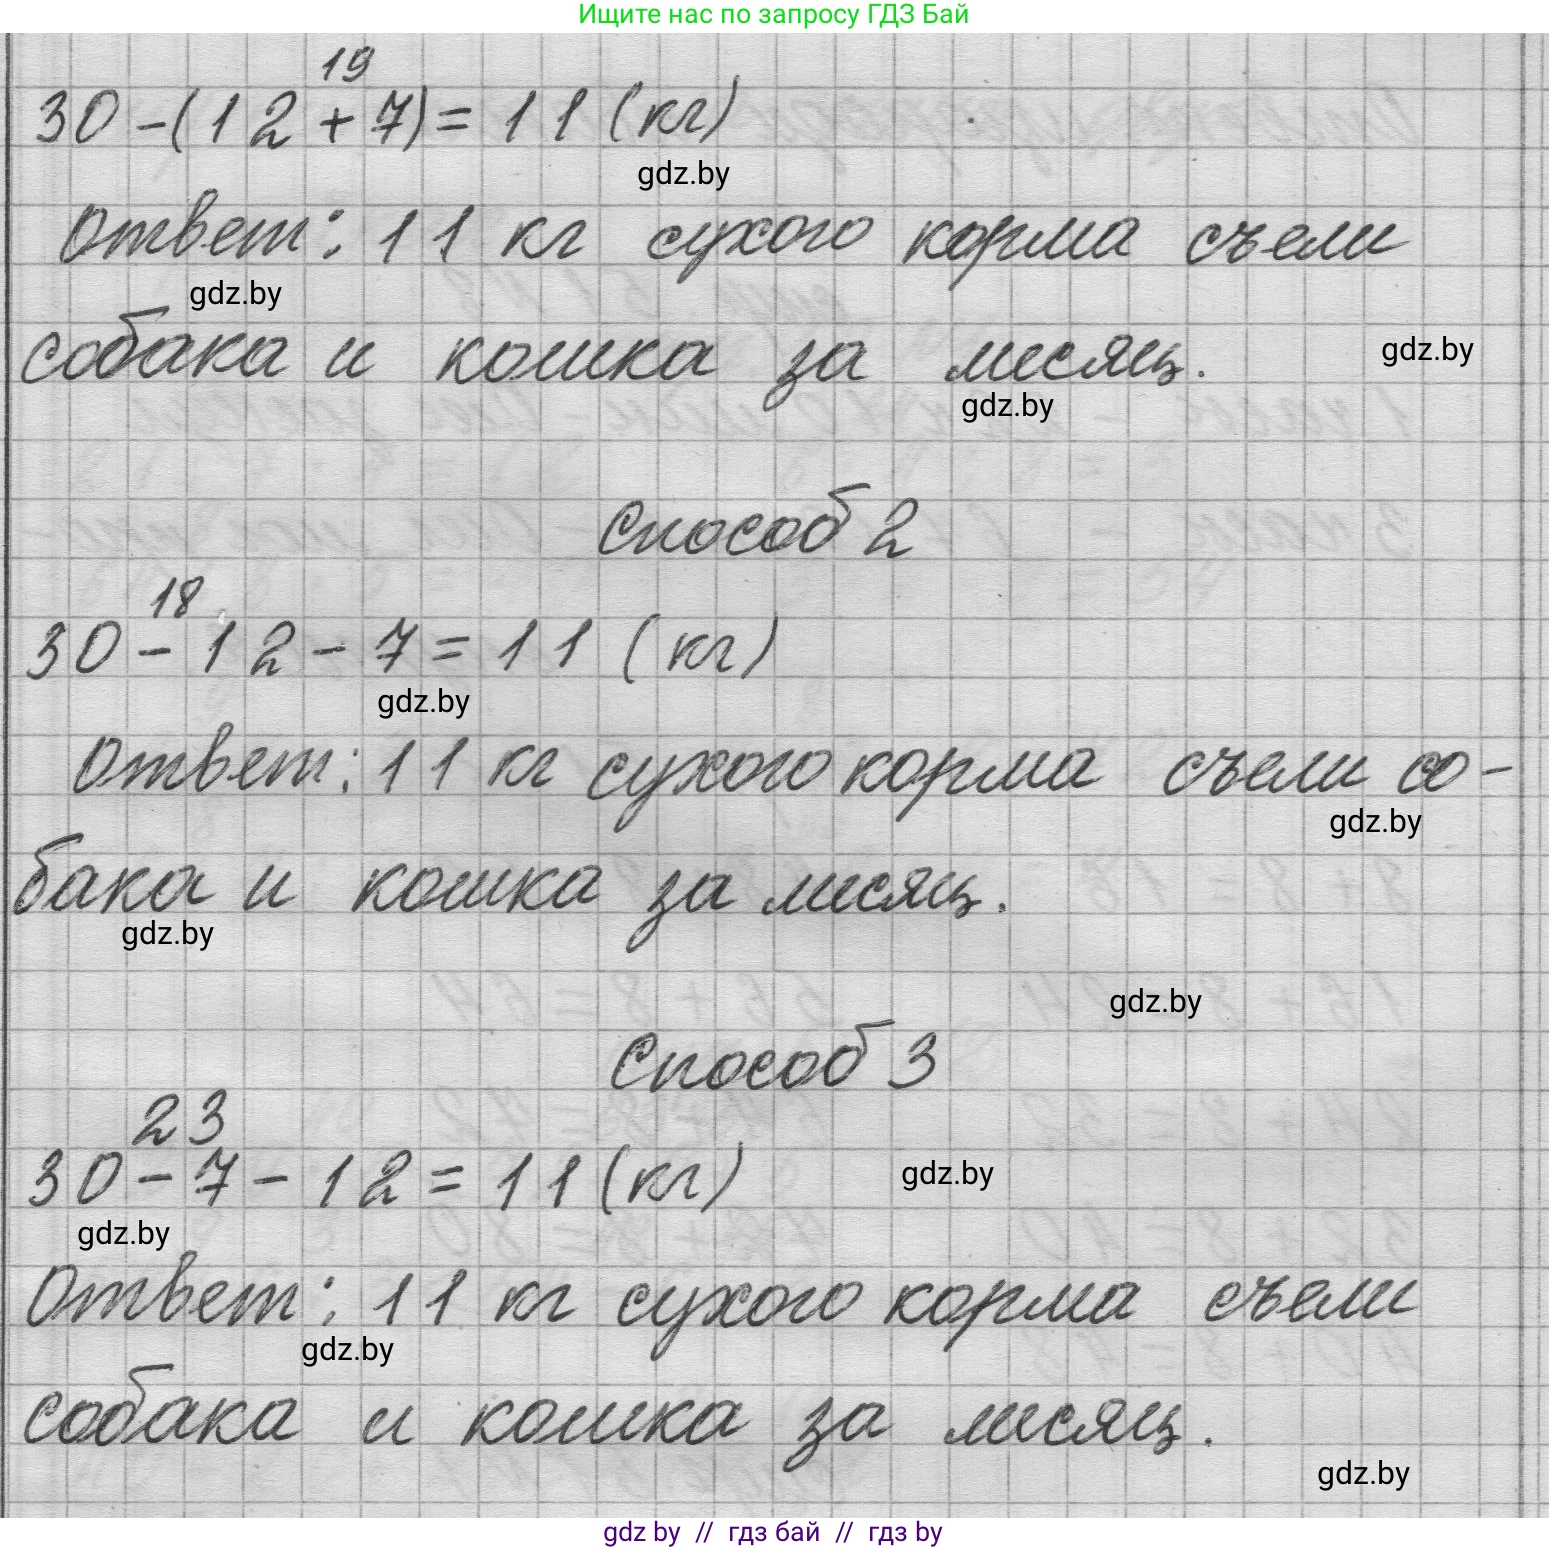 Ищите нас по запросу ГДЗ Бай
19
30-(12+7)=11(кг)
gdz.by
Ответ: 11 кг сухого корма съели
gdz.by
собака и кошка за месяц.
gdz.by
gdz.by
Способ 2
18
30-12-7=11 (кг)
gdz.by
Ответ: 11 кг сухого корма съели со-
gdz.by
бака и кошка за месяц.
gdz.by
gdz.by
Способ 3
23
30-7-12=11(кг)
gdz.by
gdz.by
Ответ: 11 кг сухого корма съели
gdz.by
собака и кошка за месяц.
gdz.by
gdz by // гдз бай // гдз by